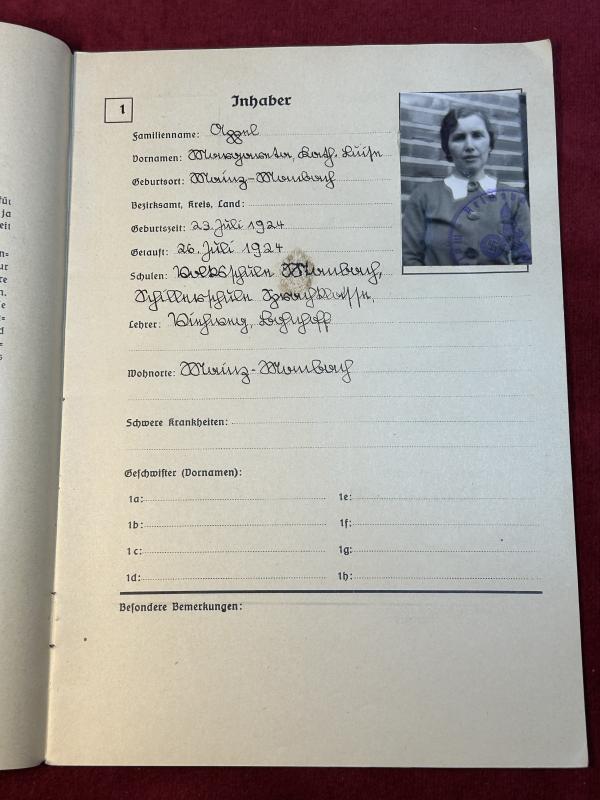 1
Inhaber
Familienname: Appel
Vornamen: Margareta, Kath. Luise
Geburtsort: Mainz-Mombach
Bezirksamt, Kreis, Land:
Geburtszeit: 23. Juli 1924
Getauft: 26. Juli 1924
Schulen: Volksschule Mombach,
Schillerschule Sprachklasse,
Lehrer:
Wohnorte: Mainz-Mombach
Schwere Krankheiten:
Geschwister (Vornamen):
1a: 1e:
1b: 1f:
1c: 1g:
1d: 1h:
Besondere Bemerkungen: